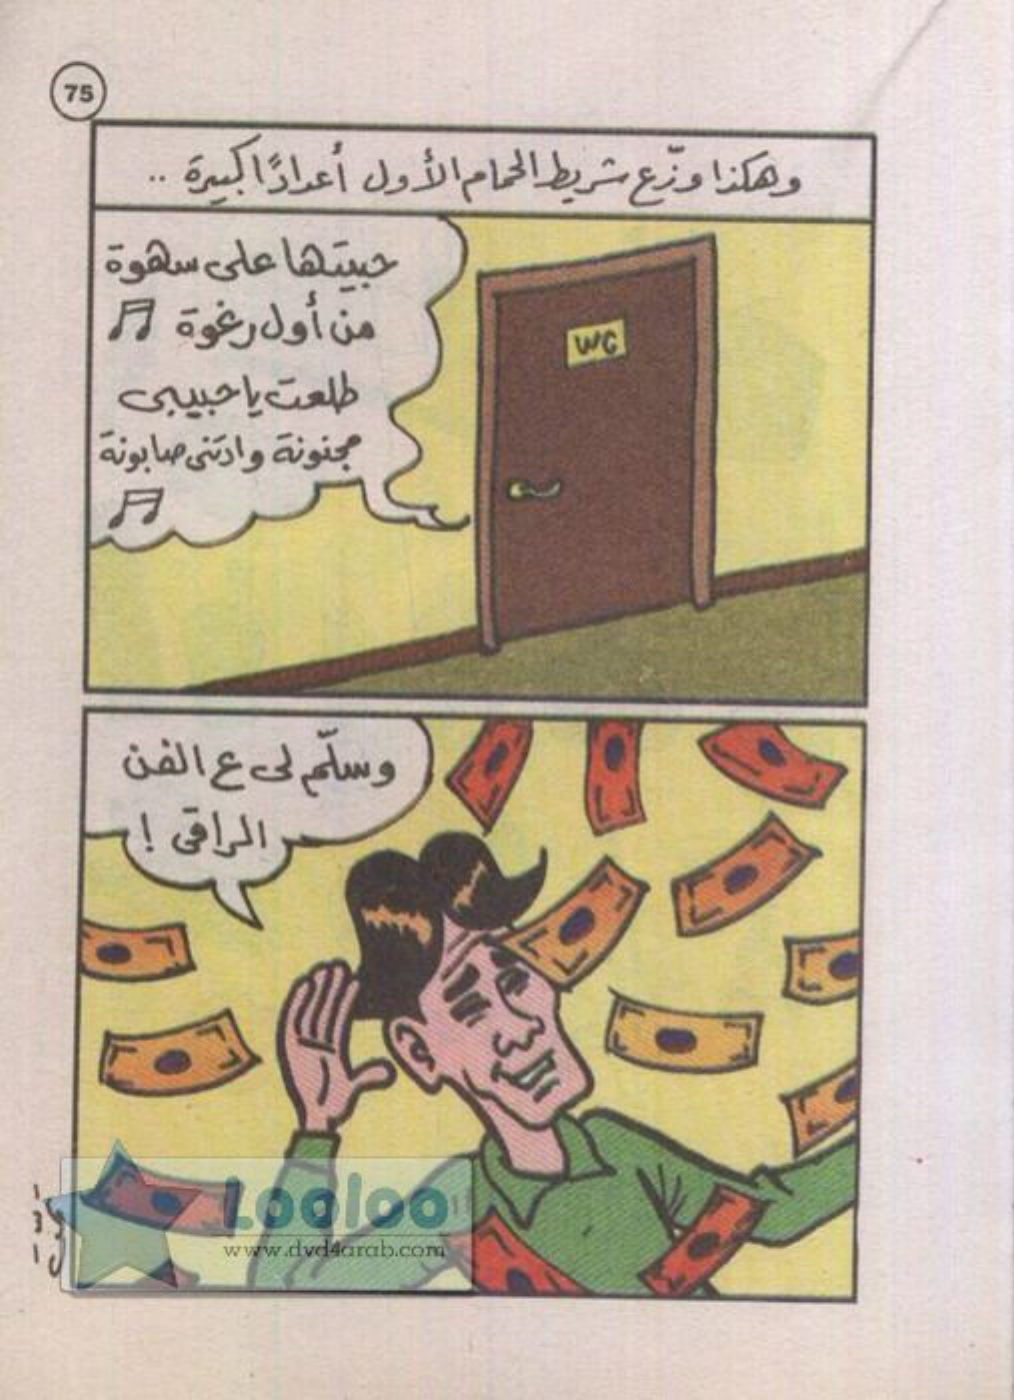 75
وهكذا وزّع شريط الحمام الأول أعدادًا كبيرة ..
حبيتها على سهوة
من أول رغوة
طلعت يا حبيبى
مجنونة وادتنى صابونة
WC
وسلّم لى ع الفن
الراقى !
Looloo
www.dvd4arab.com